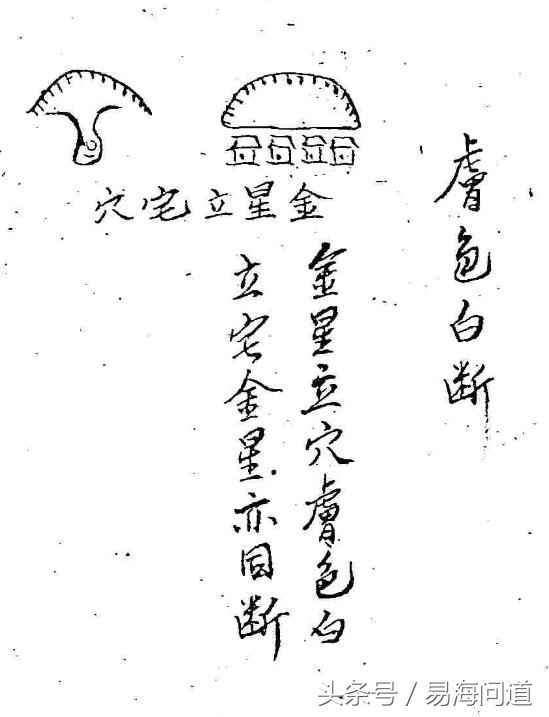 膚色白断
金星立宅穴
金星立穴膚色白
立宅金星亦同断
头条号 / 易海问道